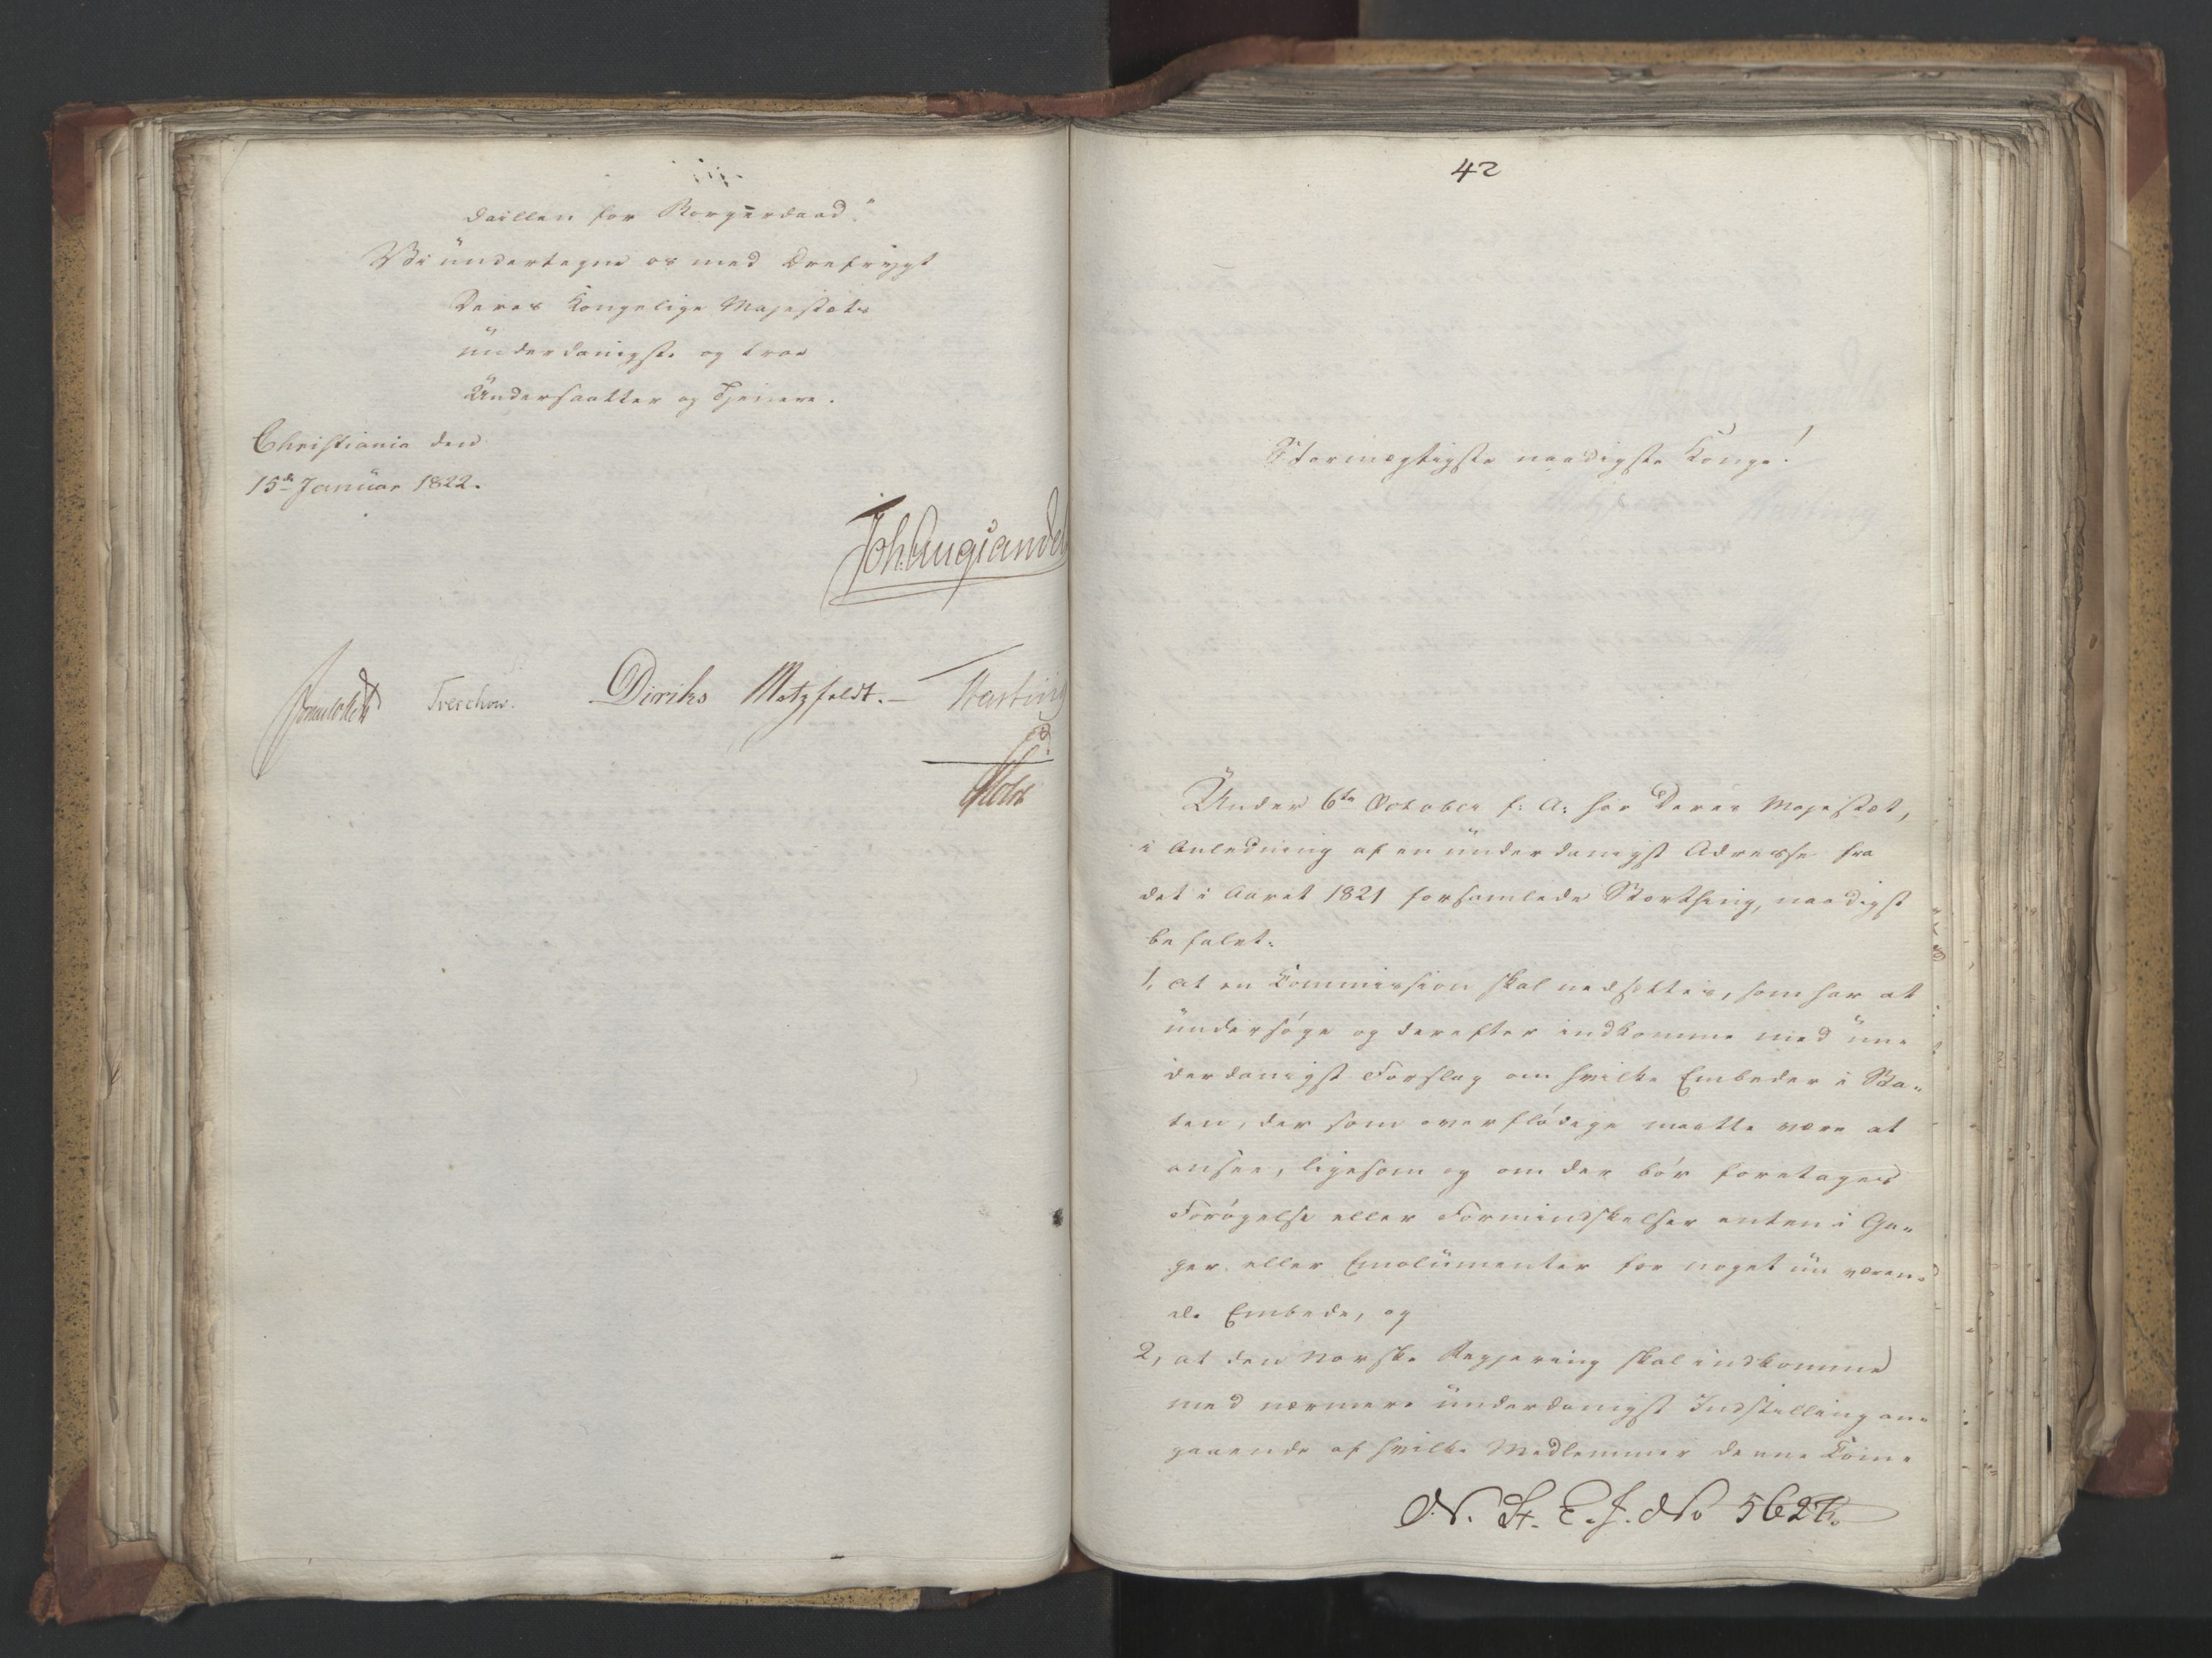 daillen for Borgerdaad."
Vi undertegne os med Ærefrygt
Deres Kongelige Majestæts
underdanigste og troe
Undersaatter og Tjenere.
Christiania den
15de Januar 1822.
Joh. Aug. Sandel
Sommerhielm Treschow. Diriks Motzfeldt. Fasting
Holst
42
Stormægtigste naadigste Konge!
Under 6te October f: A: har Deres Majestæt,
i Anledning af en underdanigst Adresse fra
det i Aaret 1821 forsamlede Storthing, naadigst
befalet:
1, at en Commission skal nedsættes, som har at
undersøge og derefter indkomme med un-
derdanigst Forslag om hvilke Embeder i Sta-
ten, der som overflødige maatte være at
ansee, ligesom og om der bør foretages
Forøgelse eller Formindskelser enten i Ga-
ger eller Emolumenter for noget nu væren-
de Embede, og
2, at den Norske Regjering skal indkomme
med nærmere underdanigst Indstilling an-
gaaende af hvilke Medlemmer denne Com-
N. St. E. J. No 562